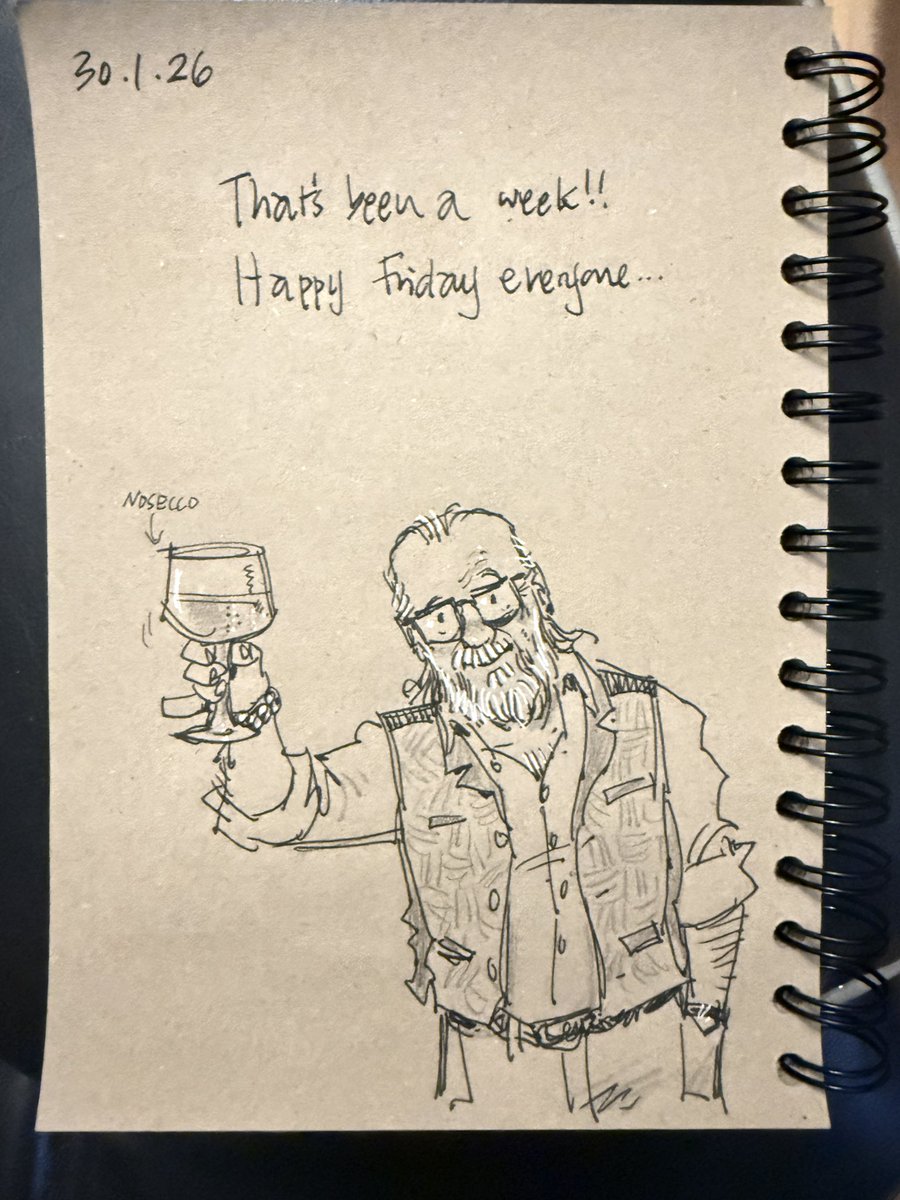 30.1.26
That's been a week!!
Happy Friday everyone...
NOSECCO